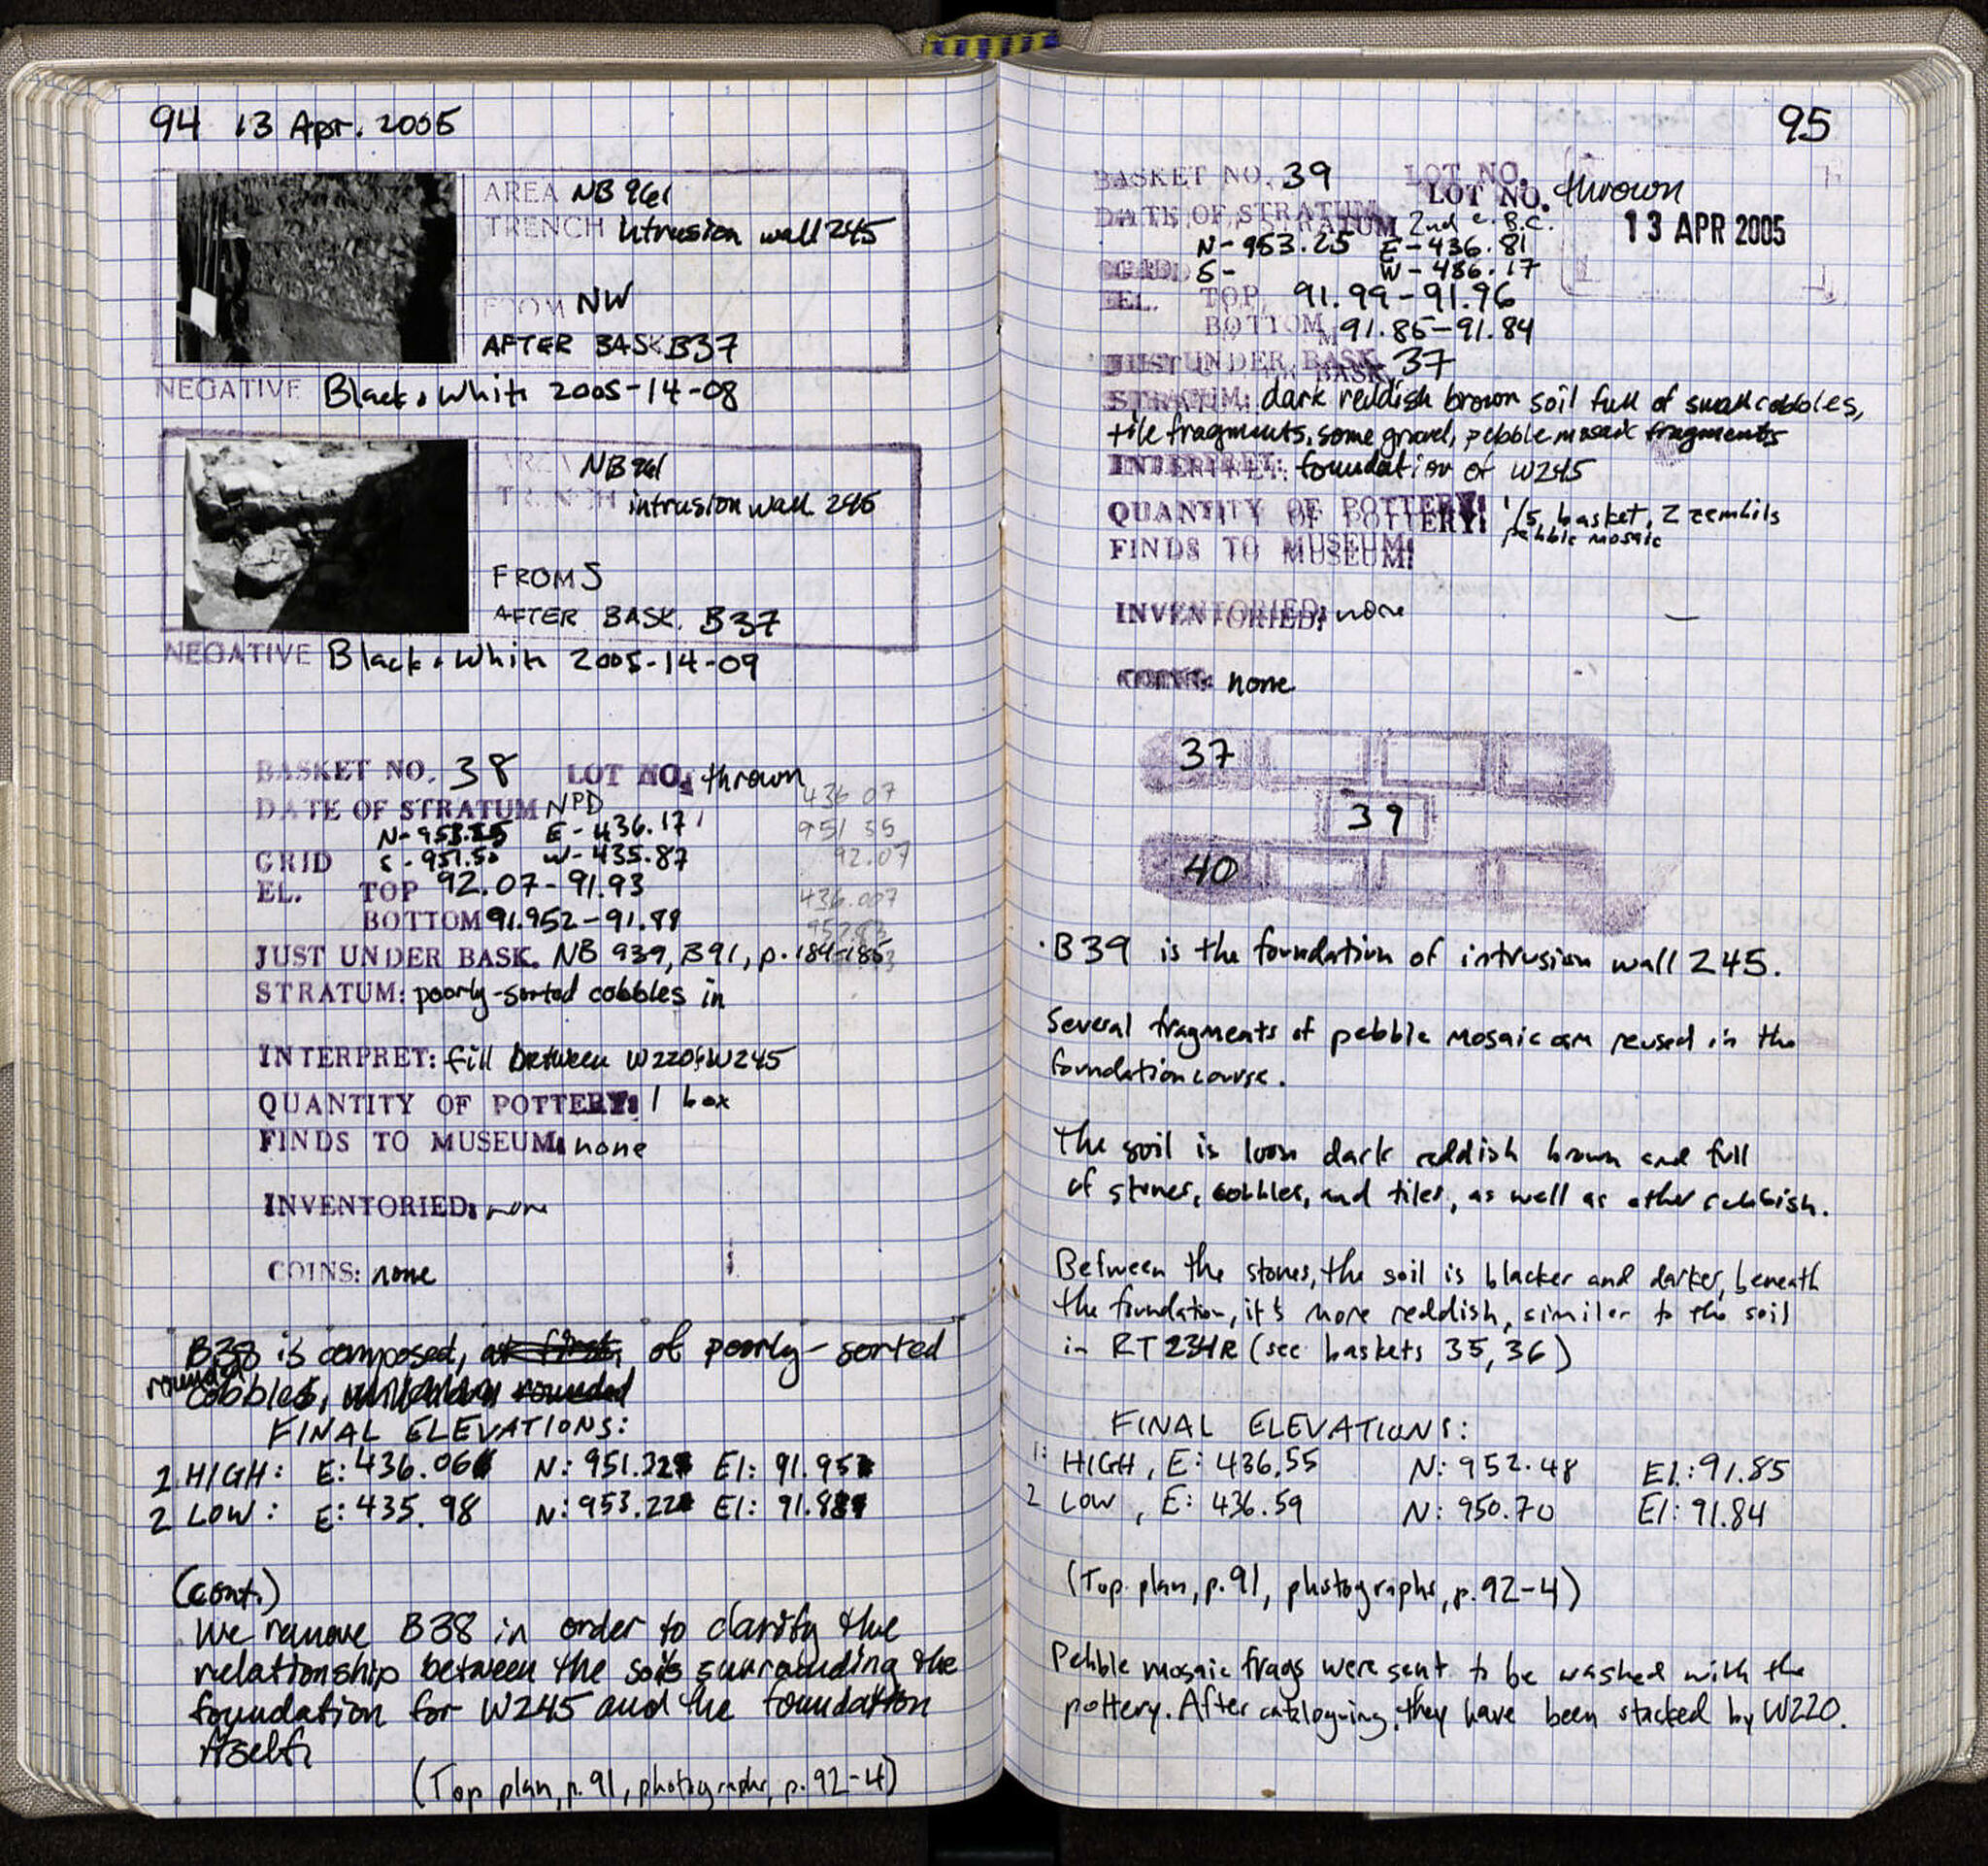 94 13 Apr. 2005
AREA NB 961
TRENCH intrusion wall 245
FROM NW
AFTER BASK B37
NEGATIVE Black & White 2005-14-08
AREA NB 961
TRENCH intrusion wall 245
FROM S
AFTER BASK. B37
NEGATIVE Black & White 2005-14-09
BASKET NO. 38 LOT NO. thrown
436 07
DATE OF STRATUM NPD
N-953.25 E-436.17
951 55
GRID S-951.50 W-435.87
92.07
EL. TOP 92.07-91.93
436.007
BOTTOM 91.952-91.88
JUST UNDER BASK. NB 939, B91, p. 184-185
STRATUM: poorly-sorted cobbles in
INTERPRET: fill between W220 & W245
QUANTITY OF POTTERY: 1 box
FINDS TO MUSEUM: none
INVENTORIED: none
COINS: none
B38 is composed, at first, of poorly-sorted
rounded cobbles, rounded
FINAL ELEVATIONS:
1 HIGH: E: 436.06 N: 951.32 El: 91.95
2 LOW: E: 435.98 N: 953.22 El: 91.88
(cont.)
We remove B38 in order to clarify the
relationship between the soils surrounding the
foundation for W245 and the foundation
itself.
(Top plan, p. 91, photographs, p. 92-4)
95
BASKET NO. 39 LOT NO. thrown
DATE OF STRATUM 2nd c. B.C.
13 APR 2005
N-953.25 E-436.81
GRID: S- W-436.17
EL. TOP 91.99-91.96
BOTTOM 91.85-91.84
JUST UNDER BASK. 37
STRATUM: dark reddish brown soil full of small cobbles,
tile fragments, some gravel, pebble mosaic fragments
INTERPRET: foundation of W245
QUANTITY OF POTTERY: 1/5 basket, 2 zembils
pebble mosaic
FINDS TO MUSEUM:
INVENTORIED: none —
COINS: none
37
39
40
·B39 is the foundation of intrusion wall 245.
Several fragments of pebble mosaic are reused in the
foundation course.
The soil is loose dark reddish brown and full
of stones, cobbles, and tiles, as well as other rubbish.
Between the stones, the soil is blacker and darker, beneath
the foundation, it's more reddish, similar to the soil
in RT 234R (see baskets 35, 36)
FINAL ELEVATIONS:
1: HIGH, E: 436.55 N: 952.48 El: 91.85
2 LOW, E: 436.59 N: 950.70 El: 91.84
(Top plan, p. 91, photographs, p. 92-4)
Pebble mosaic frags were sent to be washed with the
pottery. After cataloguing, they have been stacked by W220.